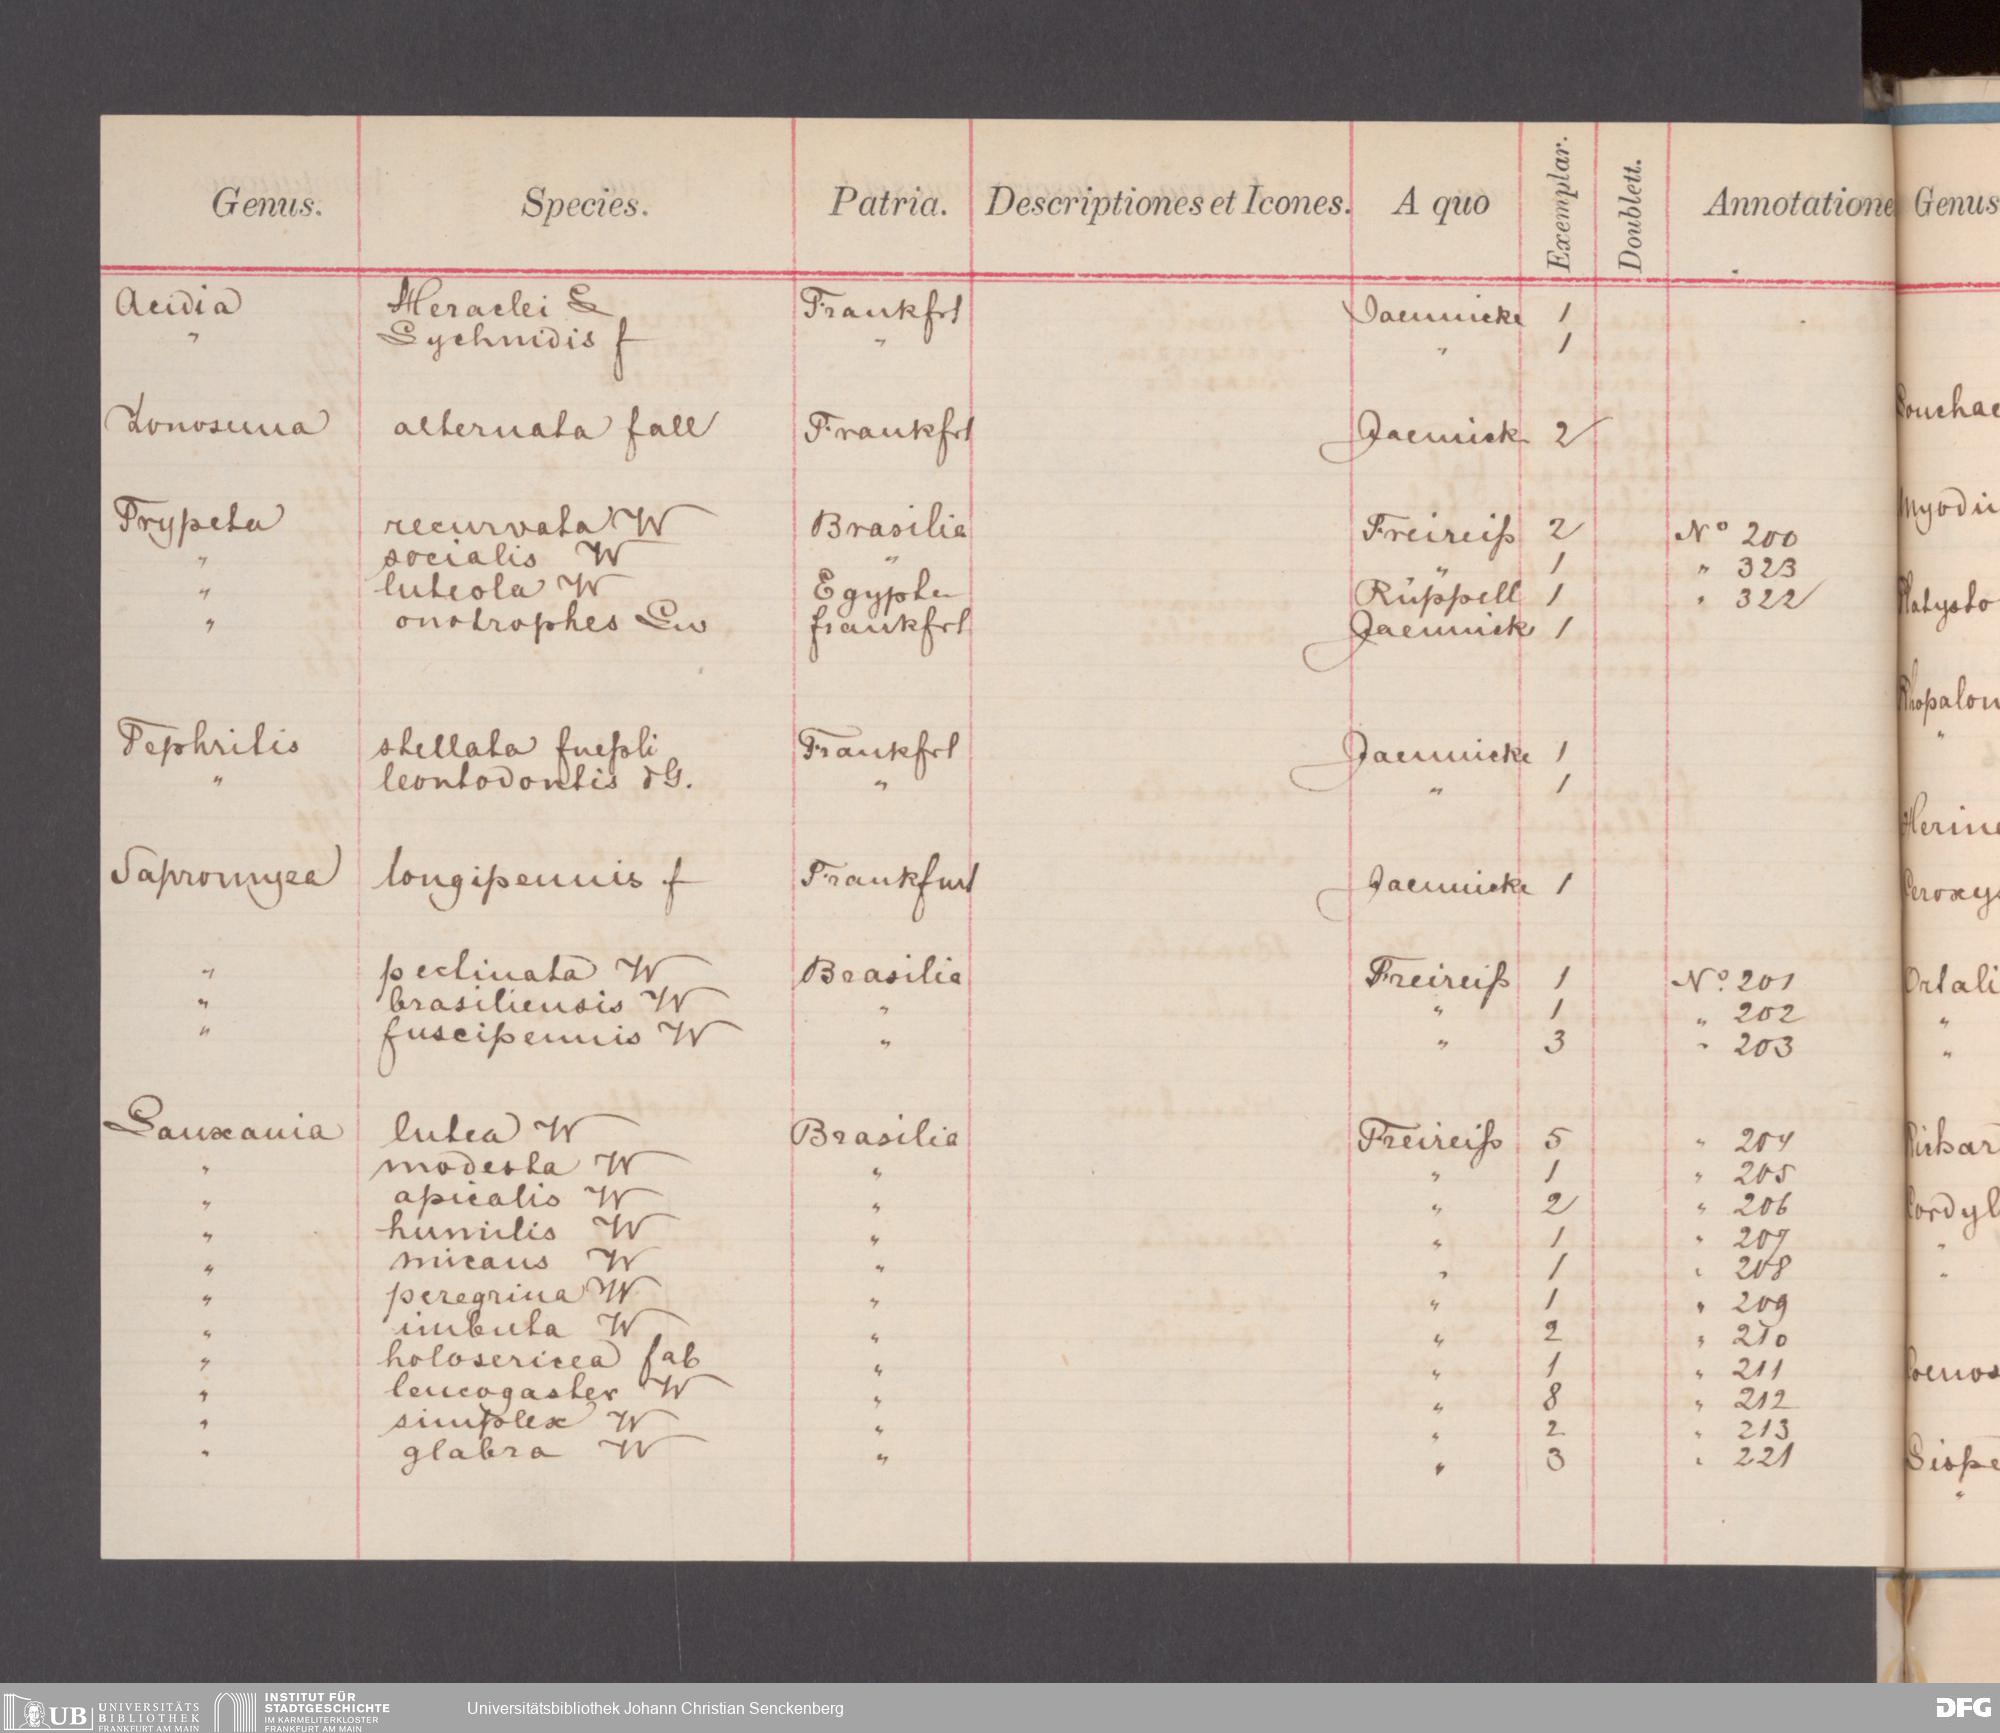 Genus. Species. Patria. Descriptiones et Icones. A quo Exemplar. Doublett. Annotatione Genus
Acidia Heraclei L Frankfrt Jaennicke 1
" Lychnidis f " " 1
Zonosema alternata fall Frankfrt Jaennick 2
Trypeta recurvata W Brasilia Freireiß 2 No 200
" socialis W " " 1 " 323
" luteola W Egypten Rüppell 1 " 322
" onotrophes Lw frankfrt Jaennick 1
Tephritis stellata fueßli Frankfrt Jaennicke 1
" leontodontis dG. " " 1
Sapromyza longipennis f Frankfurt Jaennicke 1
" pectinata W Brasilia Freireiß 1 No. 201
" brasiliensis W " " 1 " 202
" fuscipennis W " " 3 " 203
Lauxania lutea W Brasilia Freireiß 5 " 204
" modesta W " " 1 " 205
" apicalis W " " 2 " 206
" humilis W " " 1 " 207
" micans W " " 1 " 208
" peregrina W " " 1 " 209
" imbuta W " " 2 " 210
" holosericea fab " " 1 " 211
" leucogaster W " " 8 " 212
" simplex W " " 2 " 213
" glabra W " " 3 " 221
UB UNIVERSITÄTS BIBLIOTHEK FRANKFURT AM MAIN
INSTITUT FÜR STADTGESCHICHTE IM KARMELITERKLOSTER FRANKFURT AM MAIN
Universitätsbibliothek Johann Christian Senckenberg
DFG